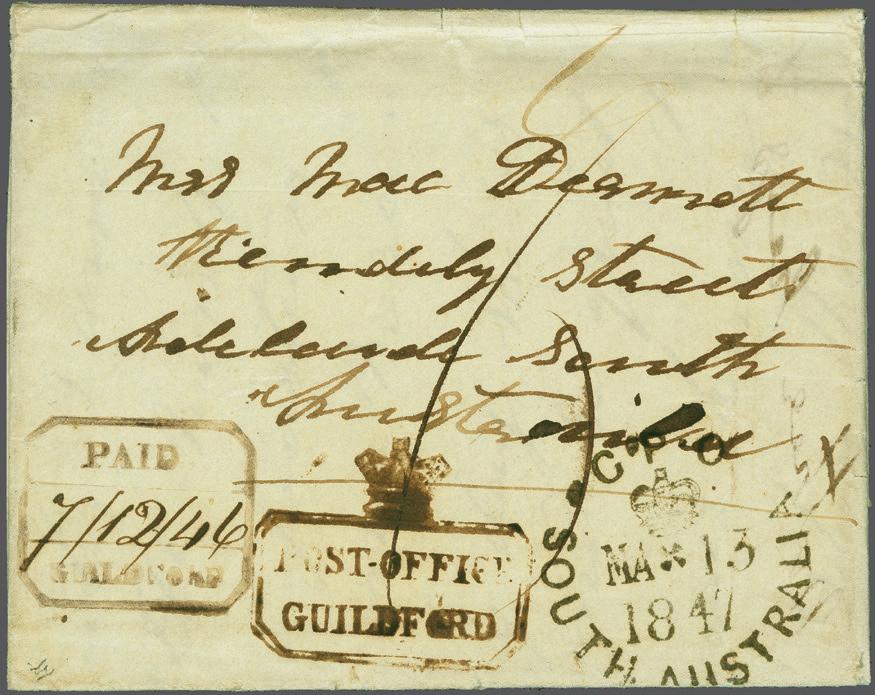 Mrs Mac Dermott
Hindley Street
Adelaide South
Australia
PAID
7/12/46
GUILDFORD
POST-OFFICE
GUILDFORD
G.P.O
MA 13
1847
SOUTH AUSTRALIA